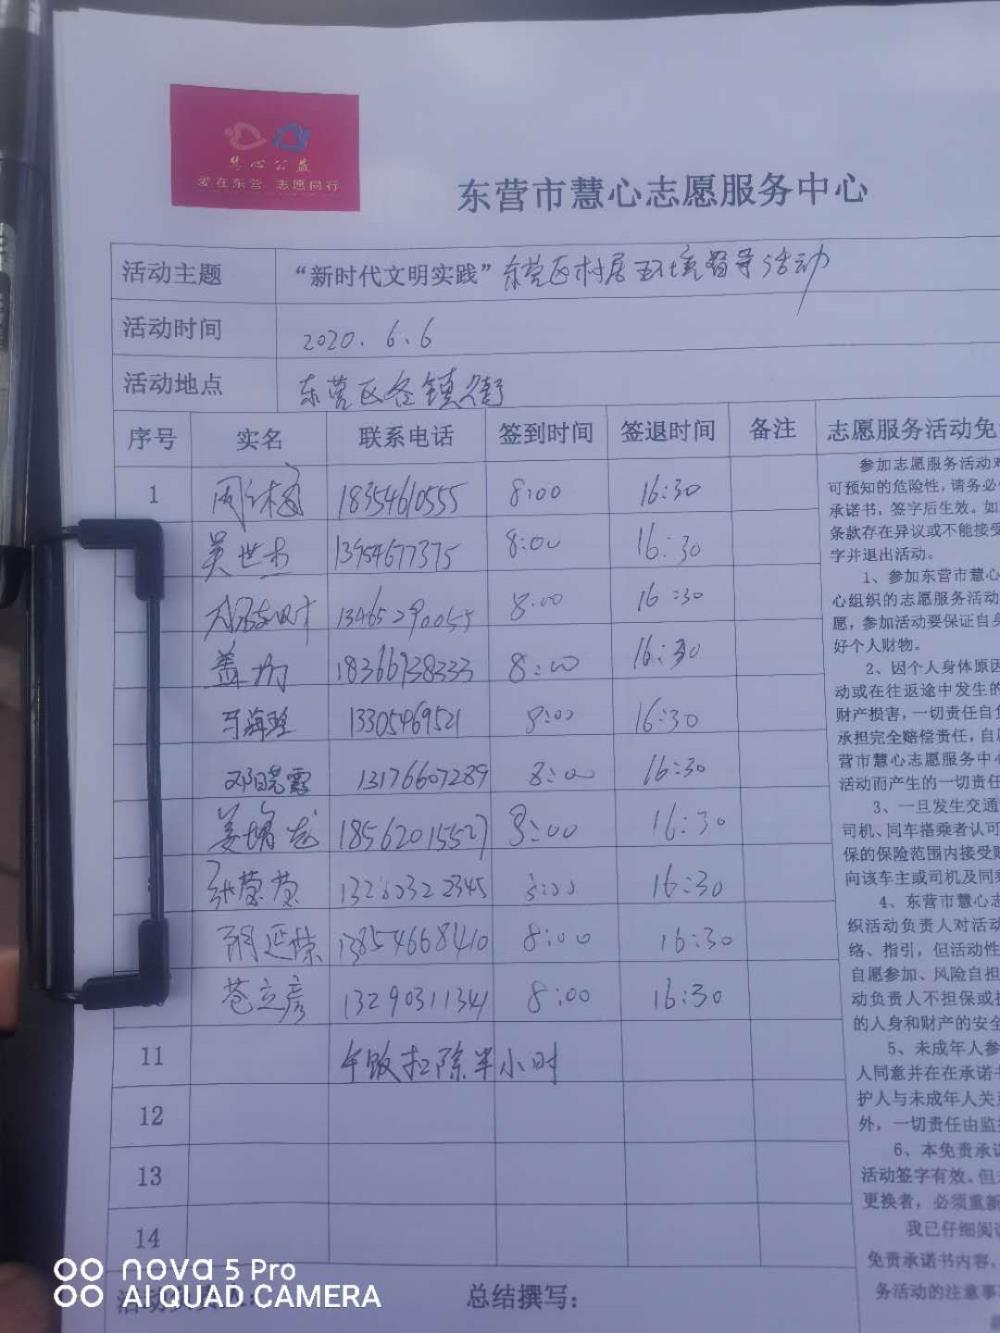 慧心公益
爱在东营 志愿同行
东营市慧心志愿服务中心
活动主题 “新时代文明实践”东营区村居环境督导活动
活动时间 2020.6.6
活动地点 东营区各镇街
序号 实名 联系电话 签到时间 签退时间 备注 志愿服务活动免
1 18354610555 8:00 16:30
吴世杰 13954677375 8:00 16:30
13465290055 8:00 16:30
盖 18366938333 8:00 16:30
13305469521 8:00 16:30
邓晓露 13176607289 8:00 16:30
姜 18562015527 8:00 16:30
张莹莹 8:00 16:30
延荣 13854668410 8:00 16:30
苍立彦 13290311341 8:00 16:30
11 午饭扣除半小时
12
13
14
总结撰写：
参加志愿服务活动对
可预知的危险性，请务必
承诺书，签字后生效。如
条款存在异议或不能接受
字并退出活动。
1、参加东营市慧心
心组织的志愿服务活动
愿，参加活动要保证自身
好个人财物。
2、因个人身体原因
动或在往返途中发生的
财产损害，一切责任自负
承担完全赔偿责任，自愿
营市慧心志愿服务中心
活动而产生的一切责任
3、一旦发生交通
司机、同车搭乘者认可
保的保险范围内接受赔
向该车主或司机及同乘
4、东营市慧心志
织活动负责人对活动
络、指引，但活动性
自愿参加、风险自担
动负责人不担保或
的人身和财产的安全
5、未成年人参
人同意并在在承诺书
护人与未成年人关系
外，一切责任由监
6、本免责承诺
活动签字有效。但
更换者，必须重新
我已仔细阅读
免责承诺书内容。
务活动的注意事
nova 5 Pro
AI QUAD CAMERA